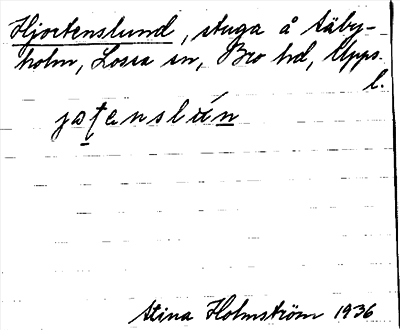 Hjortenslund, stuga å Säby-
holm, Lossa sn, Bro hd, Upps.
l.
Stina Holmström 1936